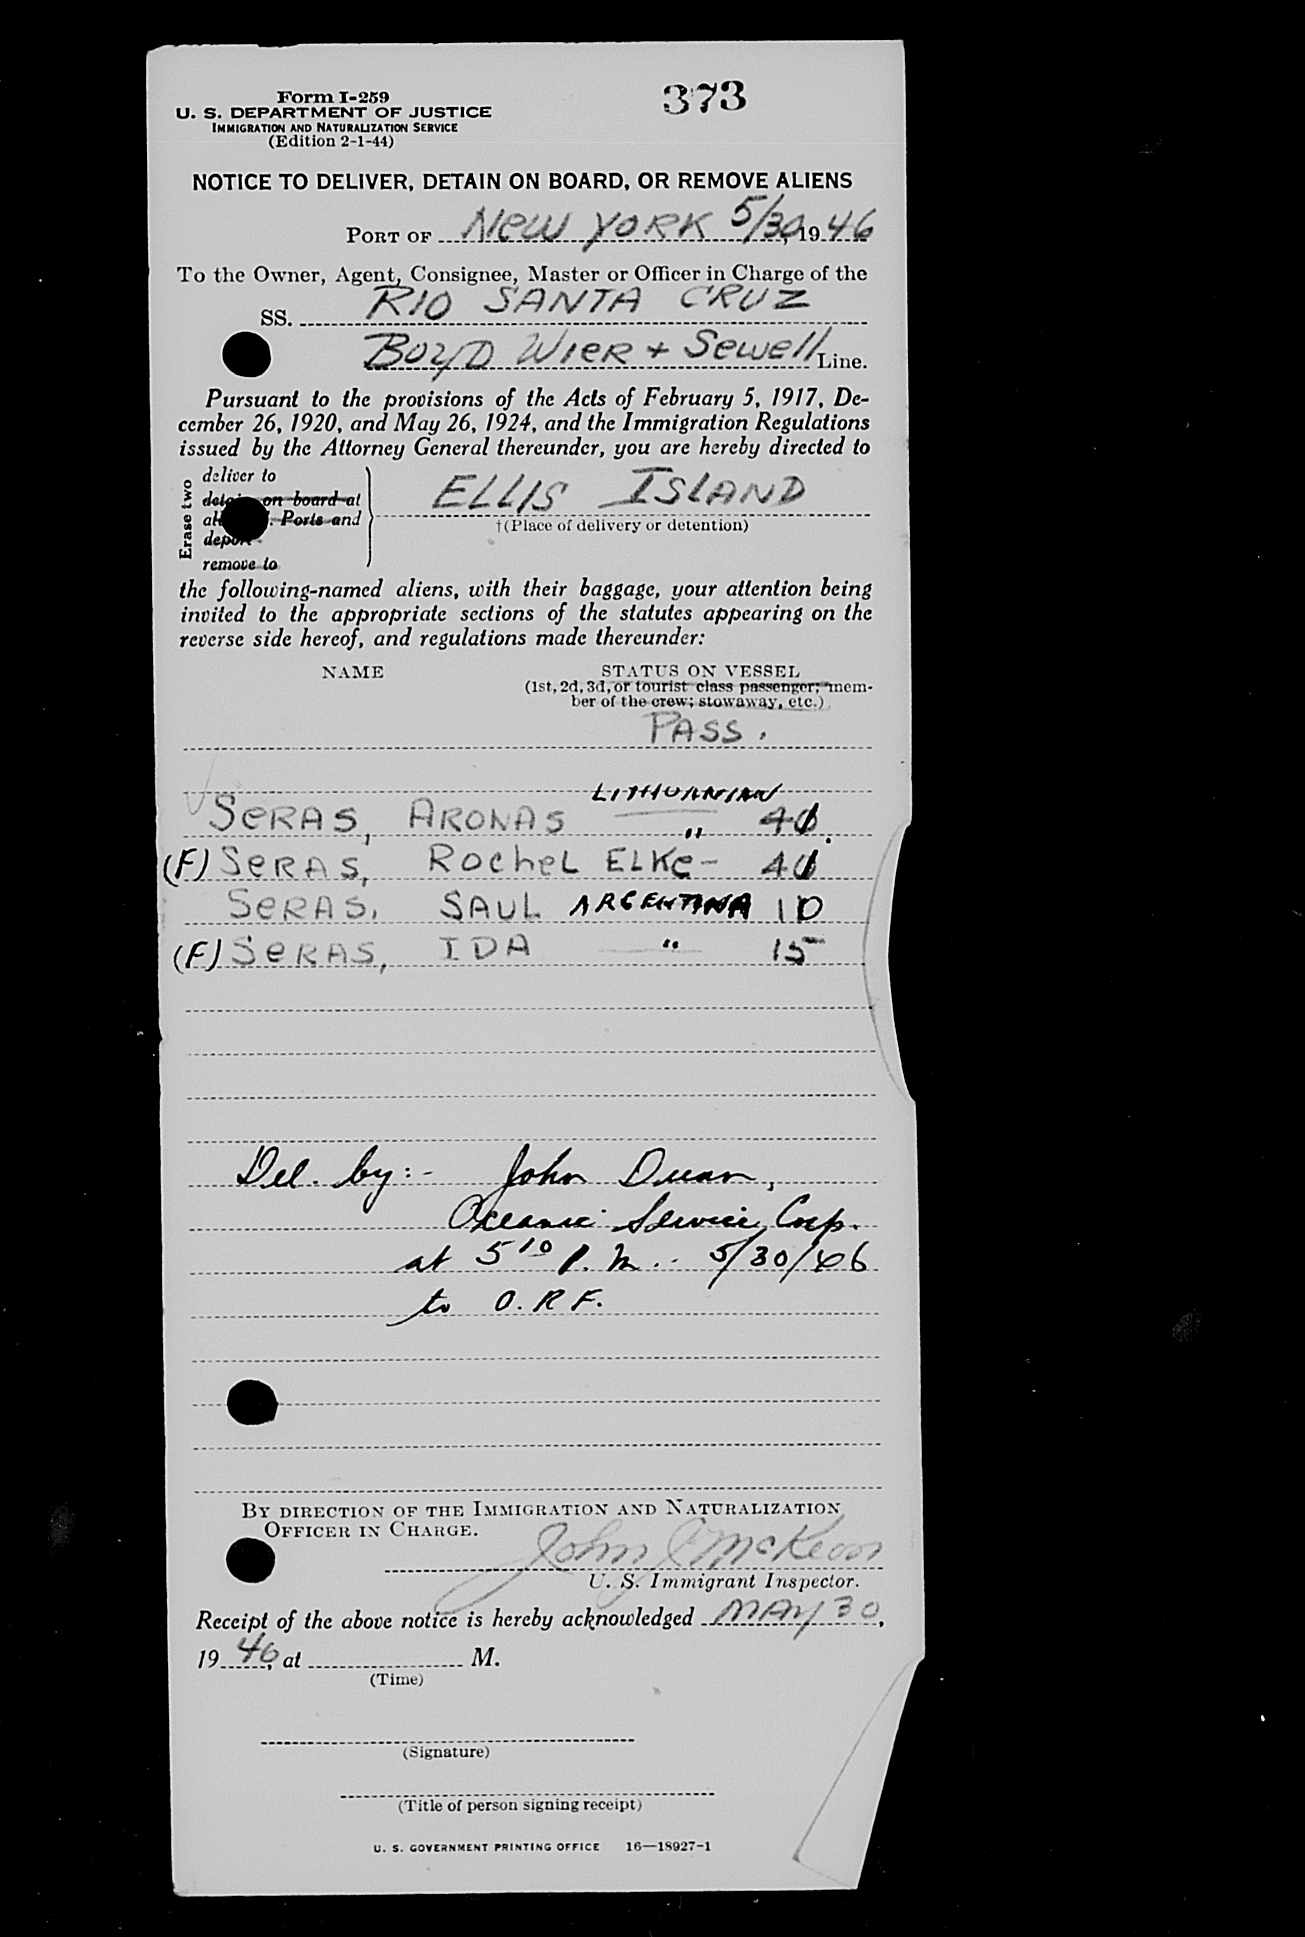 Form I-259
373
U. S. DEPARTMENT OF JUSTICE
IMMIGRATION AND NATURALIZATION SERVICE
(Edition 2-1-44)
NOTICE TO DELIVER, DETAIN ON BOARD, OR REMOVE ALIENS
PORT OF NEW YORK 5/30, 1946
To the Owner, Agent, Consignee, Master or Officer in Charge of the
SS. RIO SANTA CRUZ
BOYD WIER + SEWELL Line.
Pursuant to the provisions of the Acts of February 5, 1917, De-
cember 26, 1920, and May 26, 1924, and the Immigration Regulations
issued by the Attorney General thereunder, you are hereby directed to
Erase two
deliver to
detain on board at
Ports and
deport
remove to
ELLIS ISLAND
†(Place of delivery or detention)
the following-named aliens, with their baggage, your attention being
invited to the appropriate sections of the statutes appearing on the
reverse side hereof, and regulations made thereunder:
NAME STATUS ON VESSEL
(1st, 2d, 3d, or tourist class passenger; mem-
ber of the crew; stowaway, etc.)
PASS.
LITHUANIAN
SERAS, ARONAS " 
(F) SERAS, ROCHEL ELKE -
SERAS, SAUL ARGENTINA 10
(F) SERAS, IDA " 15
Del. by:- John
Oceanic Service Corp.
at 5 10 P. M. - 5/30/46
to O. R F.
BY DIRECTION OF THE IMMIGRATION AND NATURALIZATION
OFFICER IN CHARGE.
John J McKeon
U. S. Immigrant Inspector.
Receipt of the above notice is hereby acknowledged MAY 30,
1946, at M.
(Time)
(Signature)
(Title of person signing receipt)
U. S. GOVERNMENT PRINTING OFFICE 16—18927-1